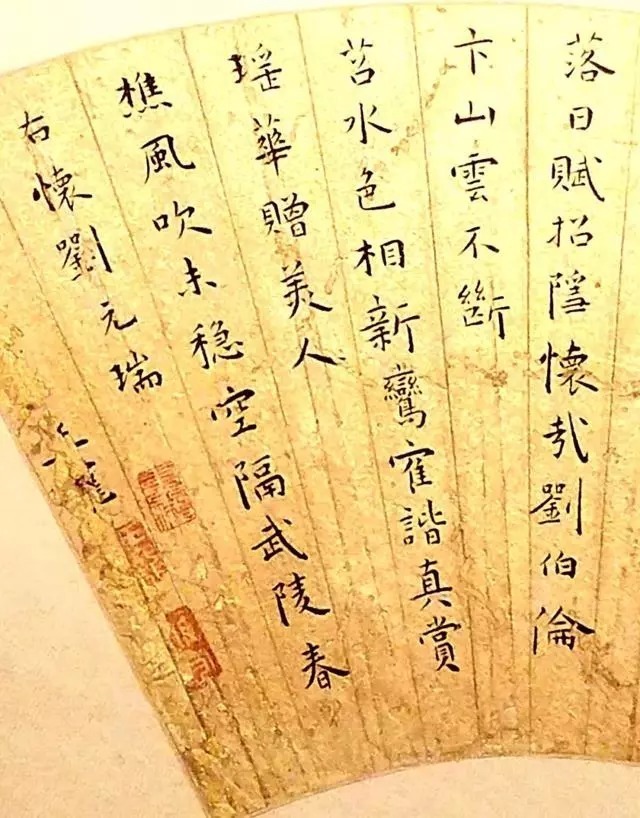 落日賦招隱懷哉劉伯倫
卞山雲不斷
苕水色相新鸞寉諧真賞
瑤華贈美人
樵風吹未穏空隔武陵春
右懷劉元瑞